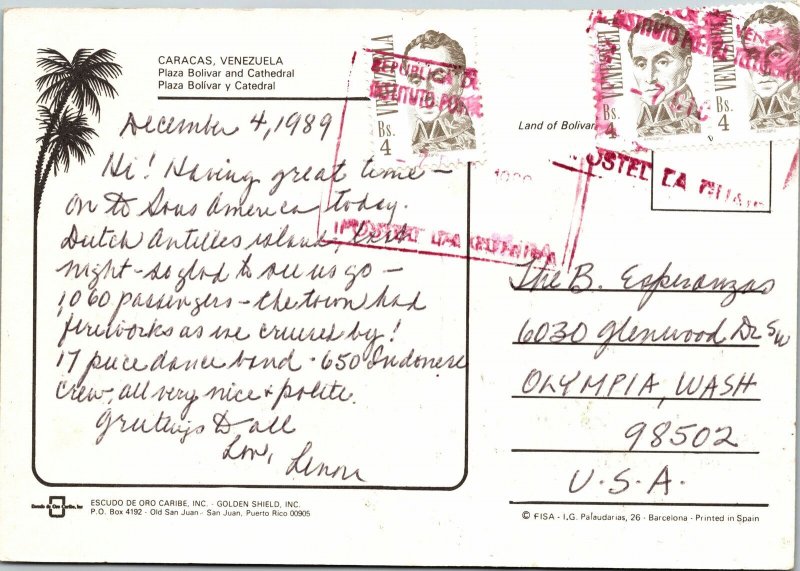 CARACAS, VENEZUELA
Plaza Bolivar and Cathedral
Plaza Bolívar y Catedral
December 4, 1989
Hi! Having great time –
on to Sous America today.
Dutch Antilles island, last
night – so glad to see us go –
1,060 passengers – the town had
fireworks as we cruised by!
17 piece dance band - 650 Indonese
crew, all very nice + polite.
Greetings to all
Love,
Lenore
ESCUDO DE ORO CARIBE, INC. - GOLDEN SHIELD, INC.
P.O. Box 4192 - Old San Juan - San Juan, Puerto Rico 00905
Escudo de Oro Caribe, Inc
VENEZUELA
Bs. 4
REPUBLICA DE
INSTITUTO POSTAL
Land of Bolivar
VENEZUELA
Bs. 4
INSTITUTO POSTAL
VENEZUELA
Bs. 4
The B. Esperanzas
6030 Glenwood Dr SW
OLYMPIA, WASH
98502
U.S.A.
© FISA - I.G. Palaudarias, 26 - Barcelona - Printed in Spain